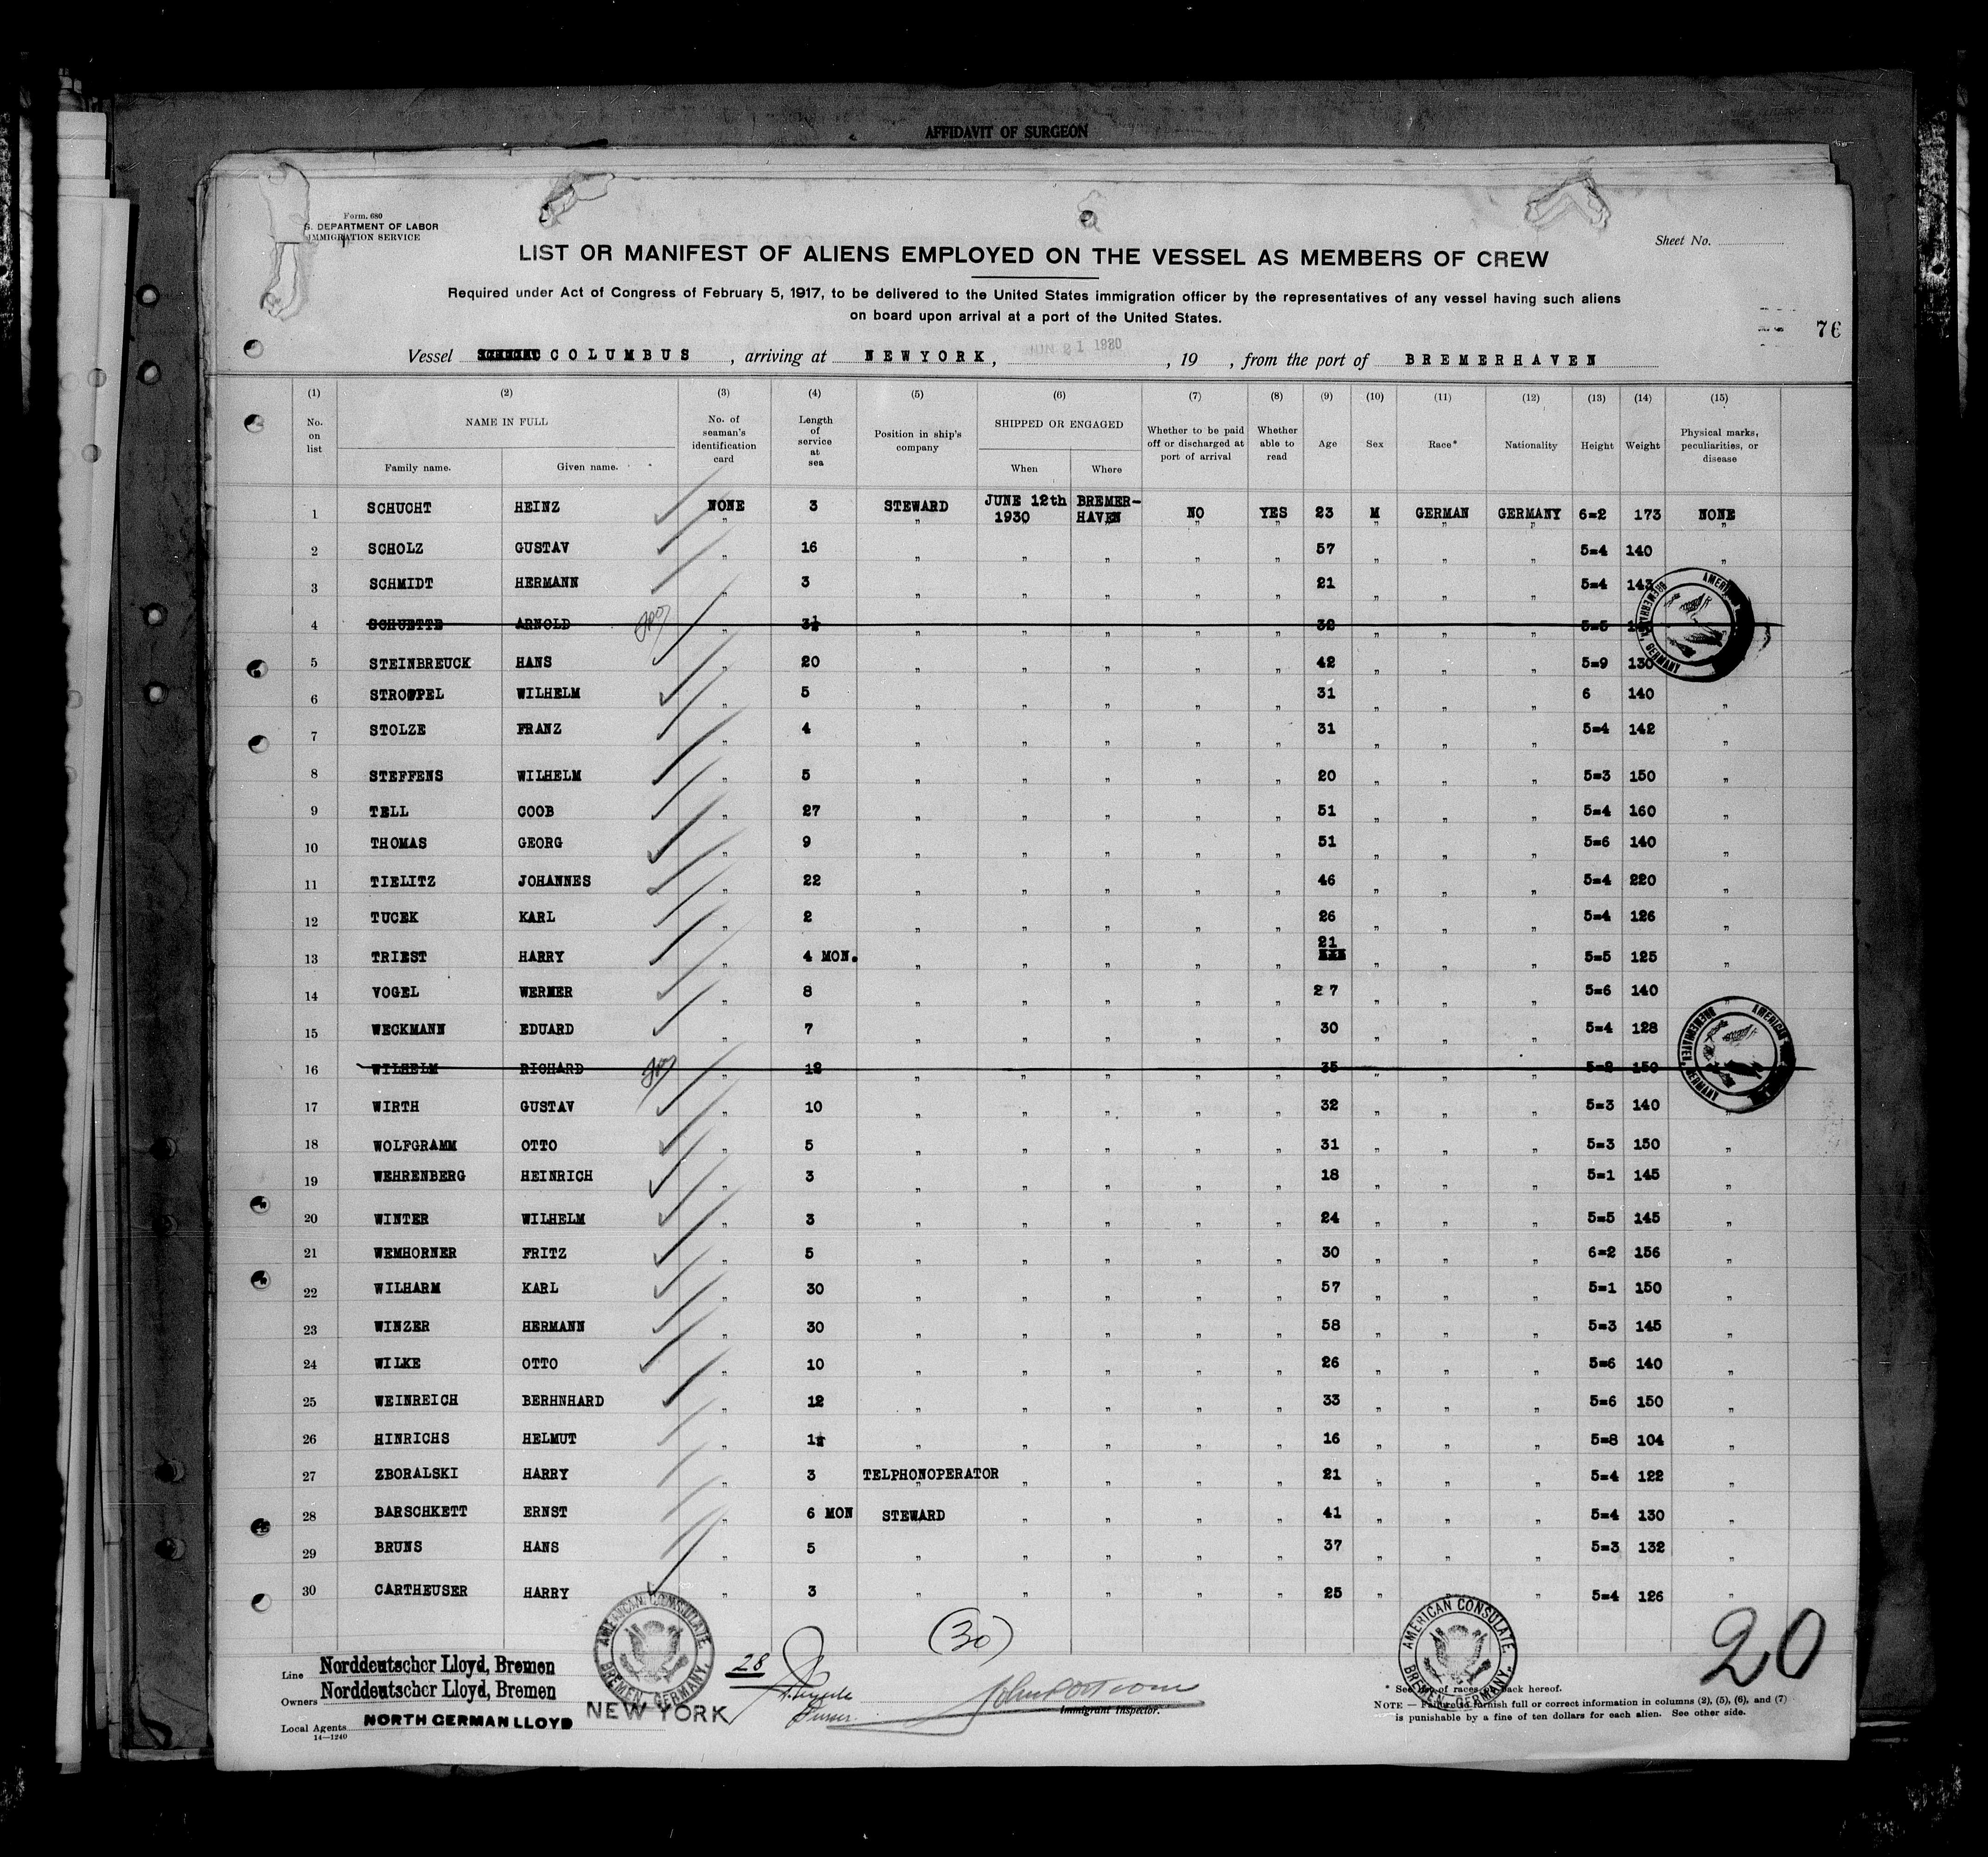 AFFIDAVIT OF SURGEON
Form. 680
S. DEPARTMENT OF LABOR
IMMIGRATION SERVICE
Sheet No.
LIST OR MANIFEST OF ALIENS EMPLOYED ON THE VESSEL AS MEMBERS OF CREW
Required under Act of Congress of February 5, 1917, to be delivered to the United States immigration officer by the representatives of any vessel having such aliens
on board upon arrival at a port of the United States.
76
Vessel COLUMBUS, arriving at NEWYORK, JUN 21 1930, 19 , from the port of BREMERHAVEN
(1) (2) (3) (4) (5) (6) (7) (8) (9) (10) (11) (12) (13) (14) (15)
No. on list NAME IN FULL Family name. Given name. No. of seaman's identification card Length of service at sea Position in ship's company SHIPPED OR ENGAGED When Where Whether to be paid off or discharged at port of arrival Whether able to read Age Sex Race* Nationality Height Weight Physical marks, peculiarities, or disease
1 SCHUCHT HEINZ NONE 3 STEWARD JUNE 12th 1930 BREMER-HAVEN NO YES 23 M GERMAN GERMANY 6=2 173 NONE
2 SCHOLZ GUSTAV " 16 " " " " " 57 " " " 5=4 140 "
3 SCHMIDT HERMANN " 3 " " " " " 21 " " " 5=4 143
4 SCHUETTE ARNOLD " 3½ " " " " " 32 " " " 5=5
5 STEINBREUCK HANS " 20 " " " " " 42 " " " 5=9 130
6 STROPPEL WILHELM " 5 " " " " " 31 " " " 6 140 "
7 STOLZE FRANZ " 4 " " " " " 31 " " " 5=4 142 "
8 STEFFENS WILHELM " 5 " " " " " 20 " " " 5=3 150 "
9 TELL COOB " 27 " " " " " 51 " " " 5=4 160 "
10 THOMAS GEORG " 9 " " " " " 51 " " " 5=6 140 "
11 TIELITZ JOHANNES " 22 " " " " " 46 " " " 5=4 220 "
12 TUCEK KARL " 2 " " " " " 26 " " " 5=4 126 "
13 TRIEST HARRY " 4 MON. " " " " " 21 " " " 5=5 125 "
14 VOGEL WERNER " 8 " " " " " 27 " " " 5=6 140
15 WECKMANN EDUARD " 7 " " " " " 30 " " " 5=4 128
16 WILHELM RICHARD " 12 " " " " " 35 " " " 5=8 150
17 WIRTH GUSTAV " 10 " " " " " 32 " " " 5=3 140 "
18 WOLFGRAMM OTTO " 5 " " " " " 31 " " " 5=3 150 "
19 WEHRENBERG HEINRICH " 3 " " " " " 18 " " " 5=1 145 "
20 WINTER WILHELM " 3 " " " " " 24 " " " 5=5 145 "
21 WEMHORNER FRITZ " 5 " " " " " 30 " " " 6=2 156 "
22 WILHARM KARL " 30 " " " " " 57 " " " 5=1 150 "
23 WINZER HERMANN " 30 " " " " " 58 " " " 5=3 145 "
24 WILKE OTTO " 10 " " " " " 26 " " " 5=6 140 "
25 WEINREICH BERHNHARD " 12 " " " " " 33 " " " 5=6 150 "
26 HINRICHS HELMUT " " " " " " 16 " " " 5=8 104 "
27 ZBORALSKI HARRY " 3 TELPHONOPERATOR " " " " 21 " " " 5=4 122 "
28 BARSCHKETT ERNST " 6 MON STEWARD " " " " 41 " " " 5=4 130 "
29 BRUNS HANS " 5 " " " " " 37 " " " 5=3 132 "
30 CARTHEUSER HARRY " 3 " " " " " 25 " " 5=4 126 "
AMERICAN CONSULATE BREMEN, GERMANY.
(30)
28
AMERICAN CONSULATE. BREMEN, GERMANY.
20
Line Norddeutscher Lloyd, Bremen
Owners Norddeutscher Lloyd, Bremen
Local Agents NORTH GERMAN LLOYD
14—1240
NEW YORK
Purser.
Immigrant Inspector.
* See list of races on back hereof.
NOTE — Failure to furnish full or correct information in columns (2), (5), (6), and (7)
is punishable by a fine of ten dollars for each alien. See other side.